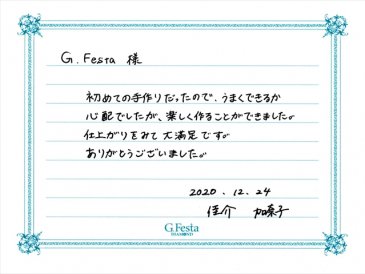 G.Festa 様
初めての手作りだったので、うまくできるか
心配でしたが、楽しく作ることができました。
仕上がりをみて大満足です。
ありがとうございました。
2020.12.24
佳介 加奈子
G.Festa
DIAMOND